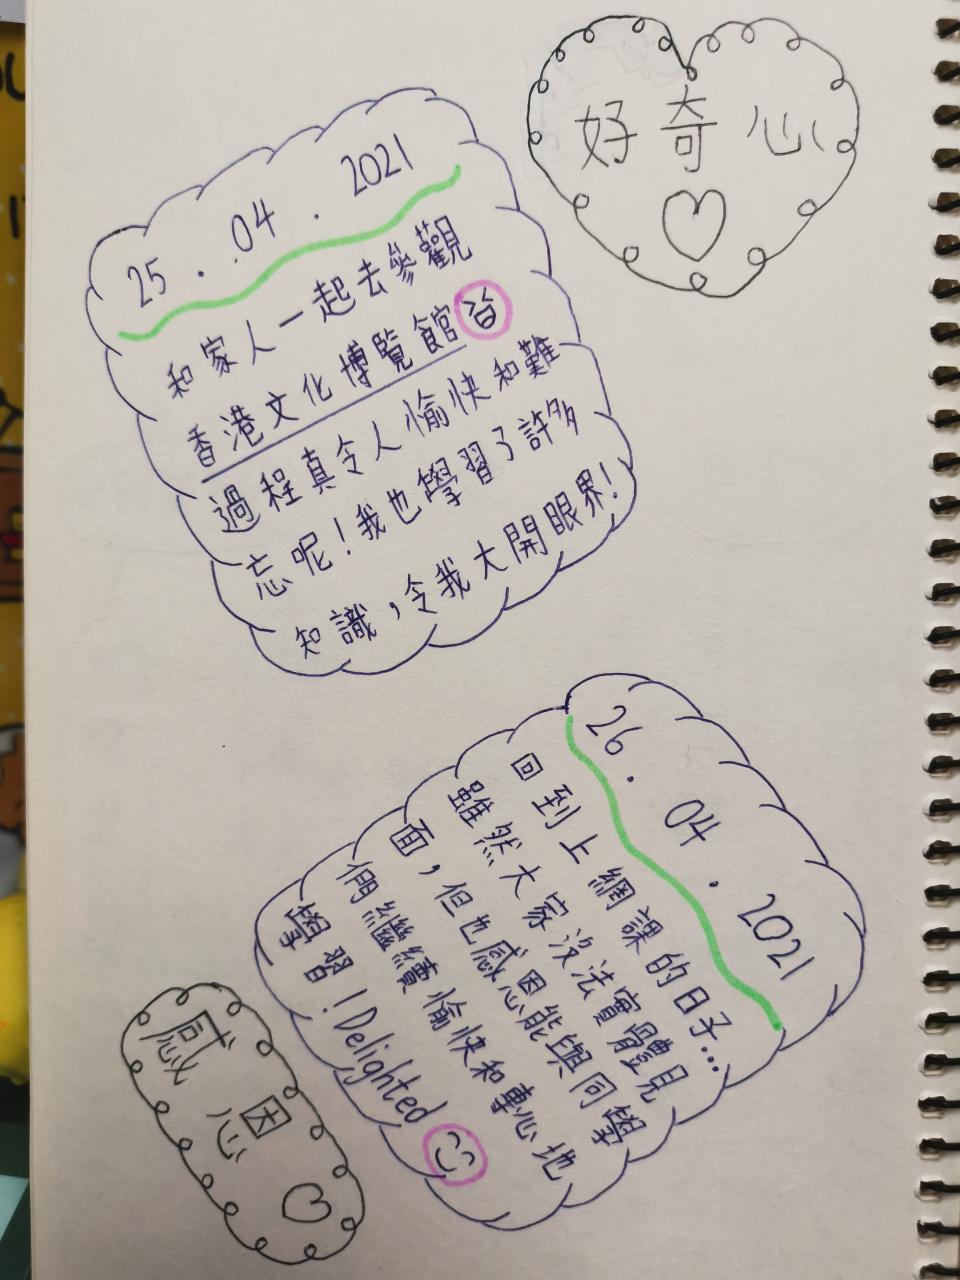 好奇心
25.04.2021
和家人一起去參觀
香港文化博覽館
過程真令人愉快和難
忘呢！我也學習了許多
知識，令我大開眼界！
26.04.2021
回到上網課的日子...
雖然大家沒法實體見
面，但也感恩能與同學
們繼續愉快和專心地
學習！Delighted
感恩